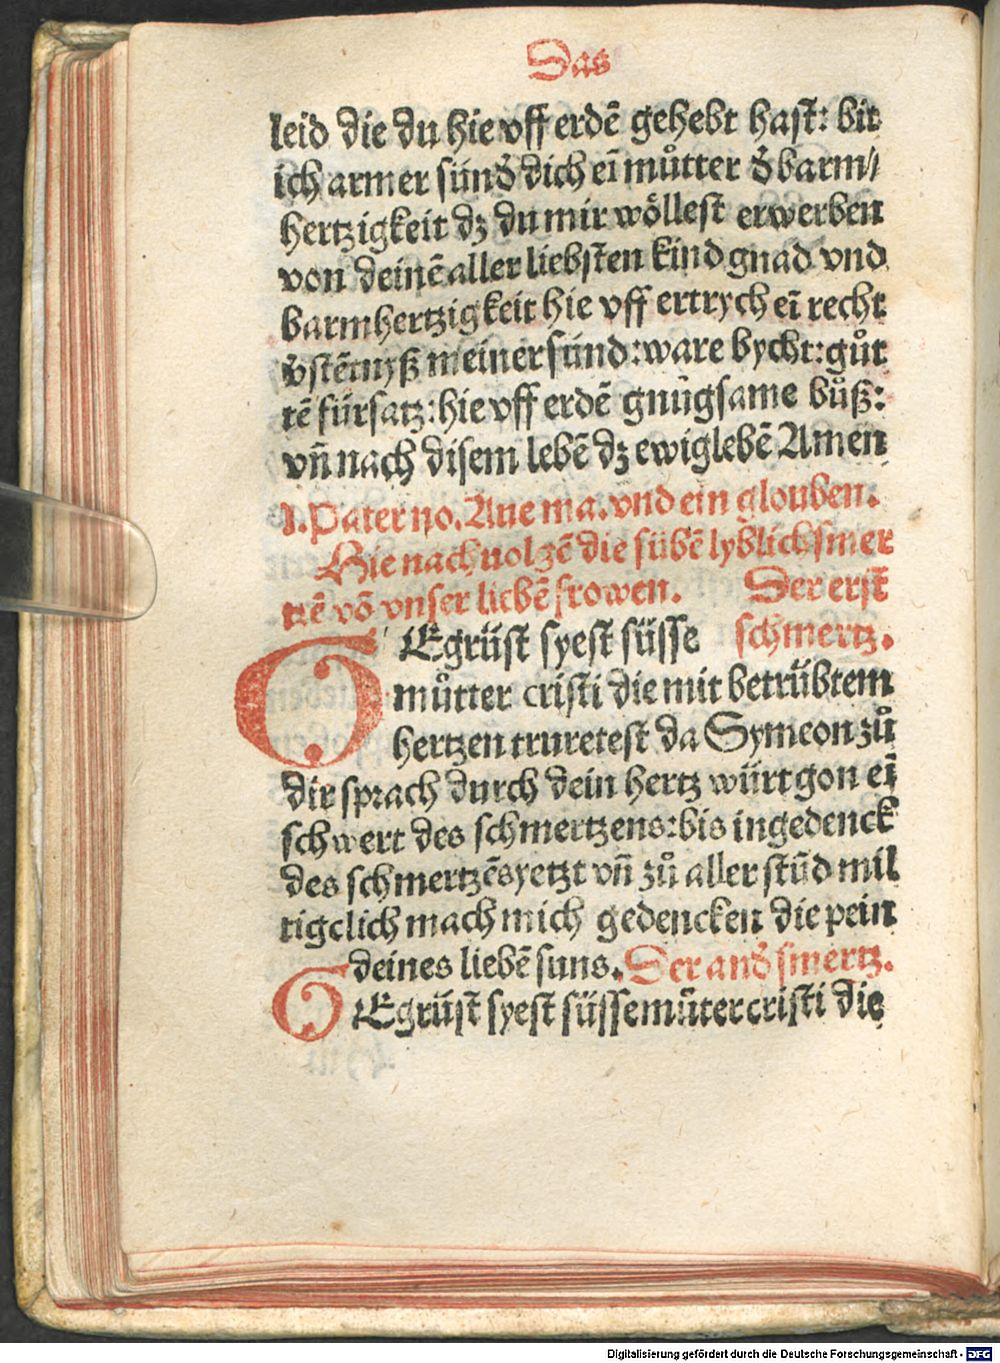 Das
leid die du hie vff erdẽ gehebt hast: bit
ich armer sünd' dich eĩ můtter d' barm/
hertzigkeit dz du mir wöllest erwerben
von deinẽ aller liebsten kind gnad vnd
barmhertzigkeit hie vff ertrych eĩ recht
v'stẽtnyß meiner sünd: ware bycht: gůt
tẽ fürsatz: hie vff erdẽ gnůgsame bůß:
vñ nach disem lebẽ dz ewig lebẽ Amen
I. Pater no. Aue ma. vnd ein glouben.
Hie nach uolgẽ die sübẽ lyblich smer
tzẽ võ vnser liebẽ frowen. Der erst
GEgrüst syest süsse schmertz.
můtter cristi die mit betrübtem
hertzen truretest da Symeon zů
dir sprach durch dein hertz würt gon eĩ
schwert des schmertzens: bis ingedenck
des schmertzẽs yetzt vñ zů aller stũd mil
tigclich mach mich gedencken die pein
deines liebẽ suns. Der and' smertz.
GEgrüst syest süsse můter cristi die
Digitalisierung gefördert durch die Deutsche Forschungsgemeinschaft - DFG